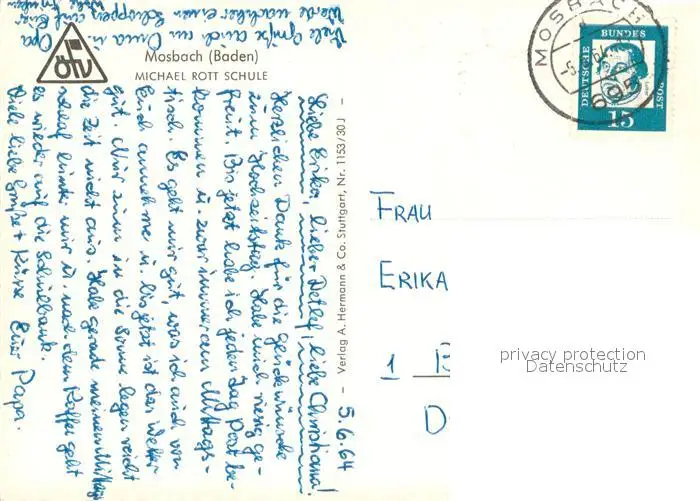 Viele Grüße auch an Oma u. Opa
Werde nachher einen Schoppen auf Euer
Wohl trinken
ÖTV
Mosbach (Baden)
MICHAEL ROTT SCHULE
5.6.64
Liebe Erika, lieber Detlef, liebe Christiana!
Herzlichen Dank für die Glückwünsche
zum Hochzeitstag. Habe mich riesig ge-
freut. Bis jetzt habe ich jeden Tag Post be-
kommen u. zwar immer am Mittags-
tisch. Es geht mir gut, was ich auch von
Euch annehme u. bis jetzt ist das Wetter
gut. Nur zum in die Sonne legen reicht
die Zeit nicht aus. Habe gerade meinen Mittags
schlaf hinter mir u. nach dem Kaffee geht
es wieder auf die Schulbank.
Viele liebe Grüße + Küsse Euer Papa.
– Verlag A. Hermann & Co. Stuttgart, Nr. 1153/30 J –
MOSBACH
695
DEUTSCHE BUNDESPOST
15
FRAU
ERIKA
1 B
D
privacy protection
Datenschutz